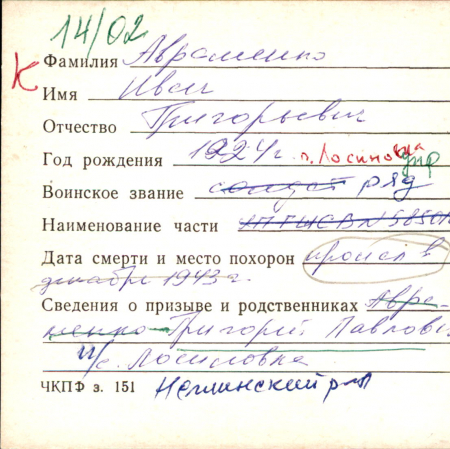 14/02
К
Фамилия Авраменко
Имя Иван
Отчество Григорьевич
Год рождения 1924 г. п. Лосиновка
Воинское звание солдат ряд
Наименование части
Дата смерти и место похорон пропал в
декабре 1943 г.
Сведения о призыве и родственниках Авра-
менко Григорий Павлови
с. Лосиловка
ЧКПФ з. 151 Нежинский р-н